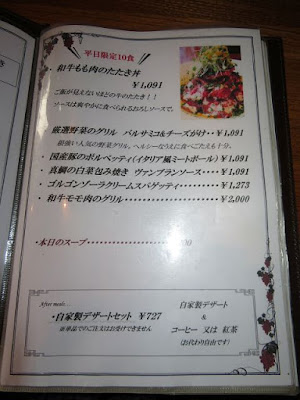 平日限定10食
・和牛もも肉のたたき丼
¥1,091
ご飯が見えないほどの牛のたたき！！
ソースは爽やかに食べられるおろしソースで。
厳選野菜のグリル バルサミコ&チーズがけ・¥1,091
根強い人気の野菜グリル。ヘルシーなうえに食べごたえも十分。
国産豚のポルペッティ(イタリア風ミートボール) ¥1,091
・真鯛の白菜包み焼き ヴァンブランソース・・・¥1,091
・ゴルゴンゾーラクリームスパゲッティ・・・・¥1,273
・和牛モモ肉のグリル・・・・・・・・・¥2,000
・本日のスープ・・・・・・・・・・・・・00
After meal...
・自家製デザートセット ¥727
※単品でのご注文はお受けできません
自家製デザート
&
コーヒー 又は 紅茶
(お代わり自由です)